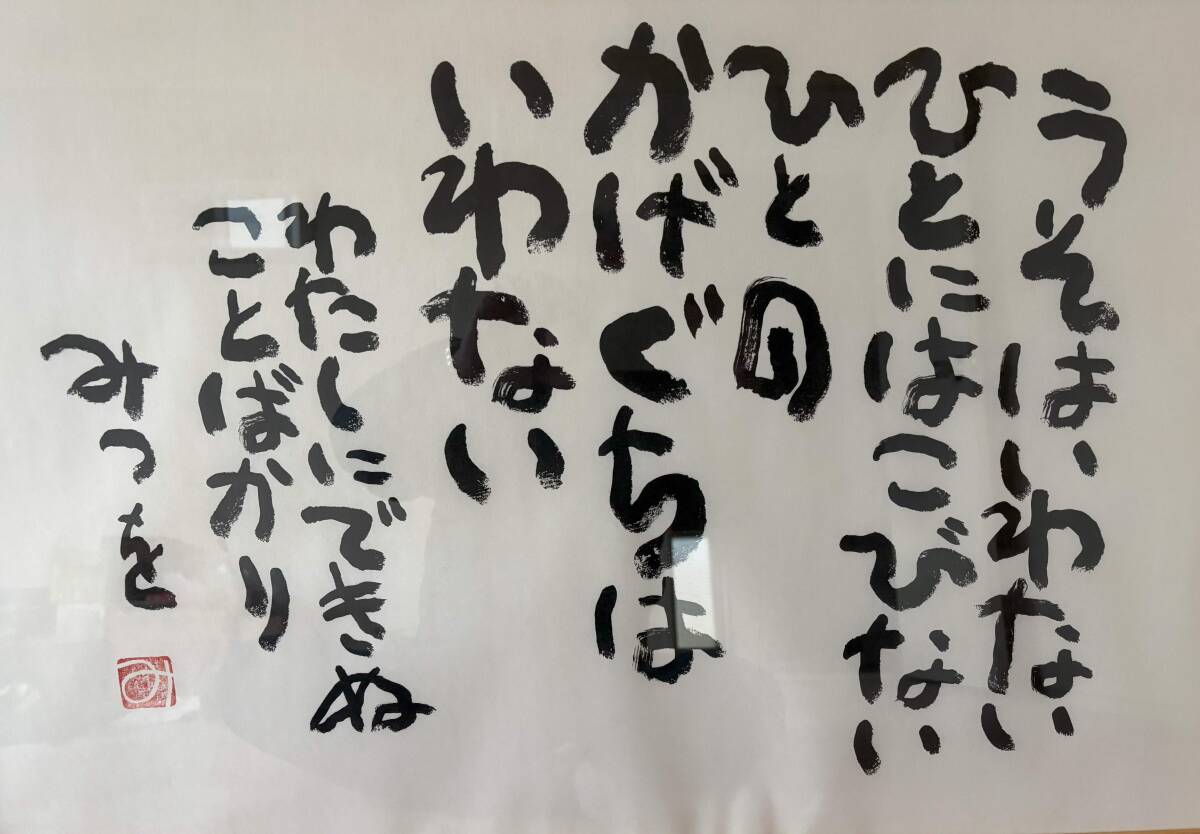 うそは、いわない
ひとにはこびない
ひとの
かげぐちは
いわない
わたしにできぬ
ことばかり
みつを
み